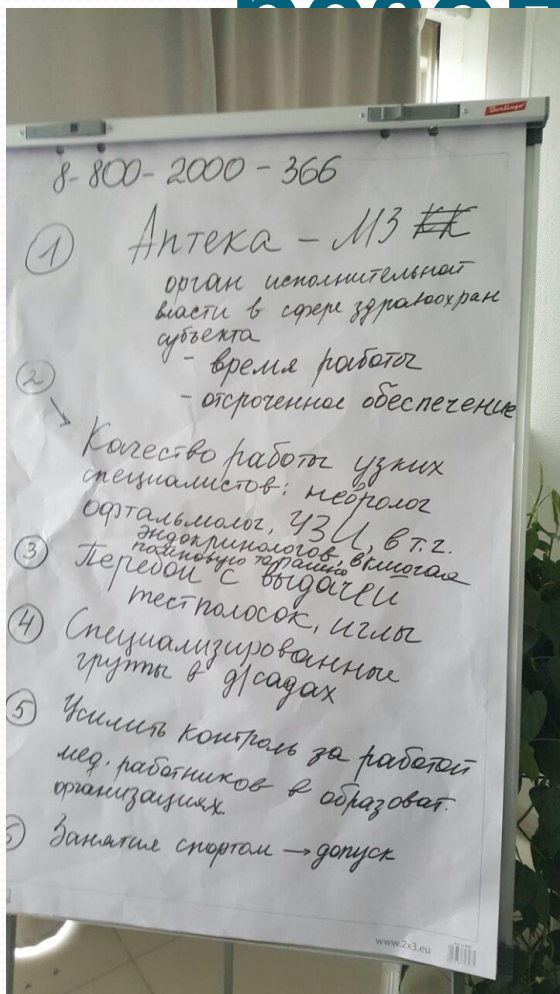 8-800-2000-366
① Аптека – МЗ КК
орган исполнительной
власти в сфере здравоохран
субъекта
- время работы
- отсроченное обеспечение
②
Качество работы узких
специалистов: невролог
офтальмолог, УЗИ, в т.г.
эндокринологов,
③ Перебои с выдачей
тест полосок, иглы
④ Специализированные
группы в д/садах
⑤ Усилить контроль за работой
мед. работников в образоват.
организациях.
Занятия спортом → допуск
www.2x3.eu